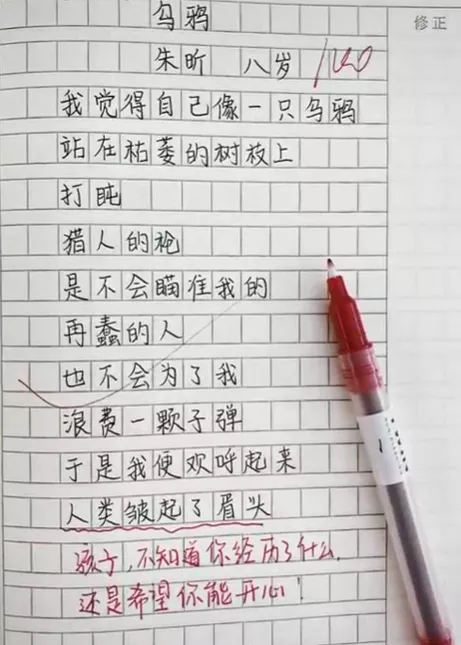 修正
乌鸦
朱昕 八岁 100
我觉得自己像一只乌鸦
站在枯萎的树枝上
打盹
猎人的枪
是不会瞄准我的
再蠢的人
也不会为了我
浪费一颗子弹
于是我便欢呼起来
人类皱起了眉头
孩子,不知道你经历了什么,
还是希望你能开心!